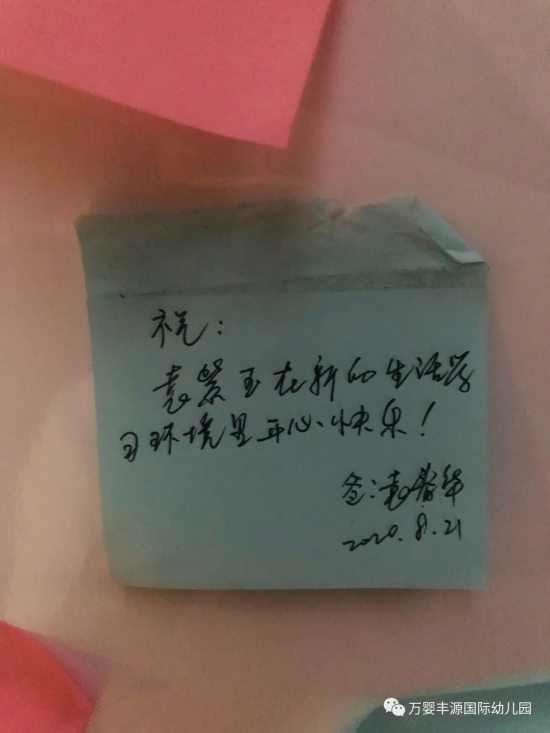 祝：
袁爱玉在新的生活学
习环境里开心、快乐！
爸：袁
2020.8.21
万婴丰源国际幼儿园